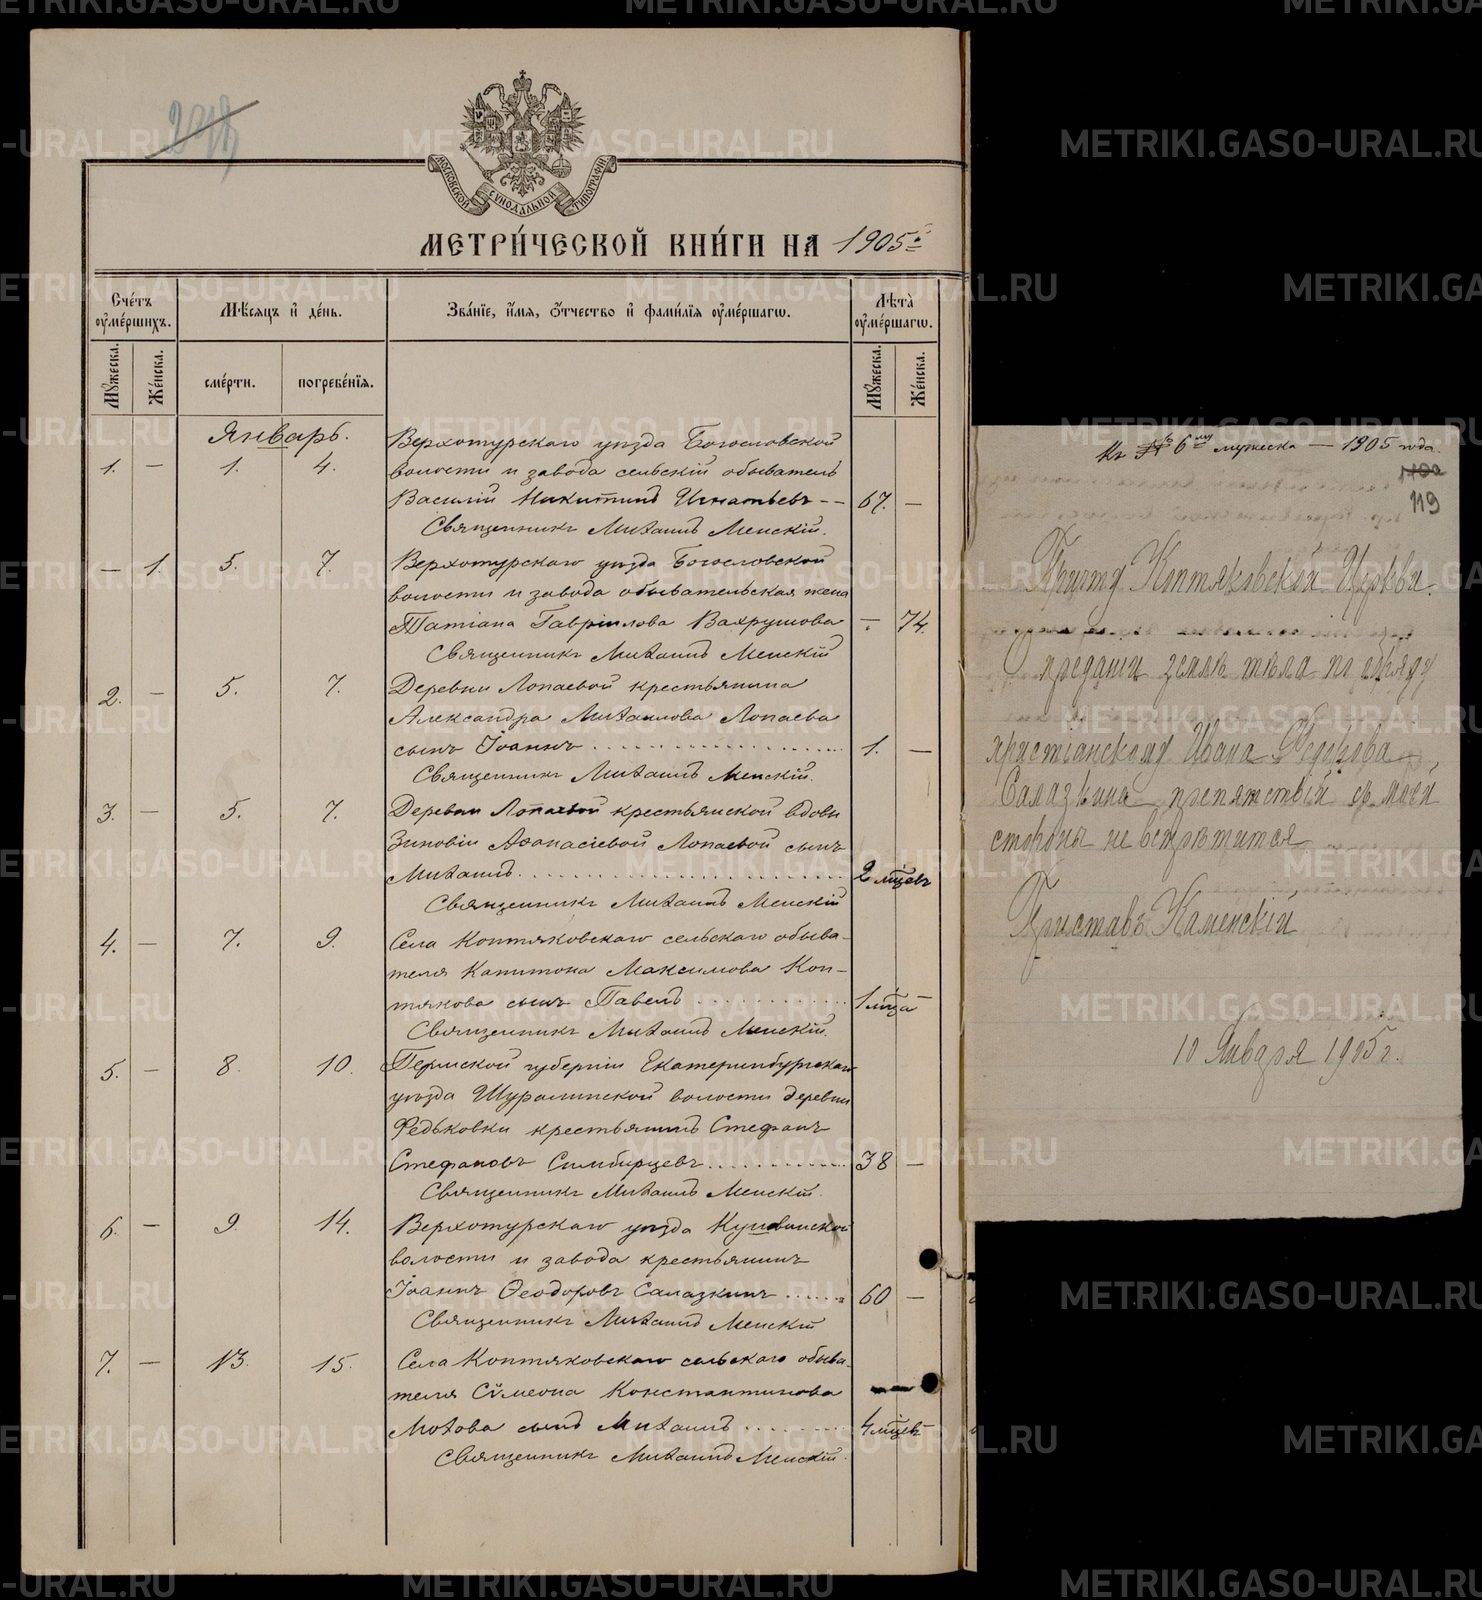 МОСКОВСКОЙ СѴНОДАЛЬНОЙ ТИПОГРАФІИ
МЕТРИ́ЧЕСКОЙ КНИ́ГИ НА 1905 г.
Сче́тъ оу҆ме́ршихъ.
Мѣ́сяцъ и҆ де́нь.
Зва́нїе, и҆́мѧ, ѻ҆́тчество и҆ фами́лїѧ оу҆ме́ршагѡ.
Лѣта̀ оу҆ме́ршагѡ.
Мꙋ́жеска.
Же́нска.
сме́рти.
погребе́нїѧ.
Мꙋ́жеска.
Же́нска.
Январь.
Верхотурскаго уѣзда Богословской
1. — 1. 4. волости и завода сельскій обыватель
Василій Никитинъ Игнатьевъ -- 67. —
Священникъ Михаилъ Менскій.
— 1. 5. 7. Верхотурскаго уѣзда Богословской
волости и завода обывательская жена
Татіана Гавріилова Вахрушова — 74.
Священникъ Михаилъ Менскій
2. — 5. 7. Деревни Лопаевой крестьянина
Александра Михаилова Лопаева
сынъ Іоаннъ . . . . . . . . . . 1. —
Священникъ Михаилъ Менскій.
3. — 5. 7. Деревни Лопаевой крестьянской вдовы
Зиновіи Аѳанасіевой Лопаевой сынъ
Михаилъ . . . . . . . . . . 2 мѣсцевъ
Священникъ Михаилъ Менскій
4. — 7. 9. Села Коптяковскаго сельскаго обыва-
теля Капитона Максимова Коп-
тякова сынъ Павелъ . . . . . . 1 мѣсца
Священникъ Михаилъ Менскій.
5. — 8. 10. Пермской губерніи Екатеринбургскаго
уѣзда Шуралинской волости деревни
Федьковки крестьянинъ Стефанъ
Стефановъ Симбирцевъ . . . . . . 38 —
Священникъ Михаилъ Менскій.
6. — 9. 14. Верхотурскаго уѣзда Кушвинской
волости и завода крестьянинъ
Іоаннъ Ѳеодоровъ Салазкинъ . . . . . 60 —
Священникъ Михаилъ Менскій
7. — 13. 15. Села Коптяковскаго сельскаго обыва-
теля Сѵмеона Константинова
Мохова сынъ Михаилъ . . . . . . 4 мѣсцевъ
Священникъ Михаилъ Менскій.
Къ № 6му мужеска — 1905 года.
119
Причту Коптяковской Церкви.
О преданіи землѣ тѣла по обряду
христіанскому Ивана Федорова
Салазкина препятствій съ моей
стороны не встрѣтится
Приставъ Каменскій
10 Января 1905 г.
METRIKI.GASO-URAL.RU